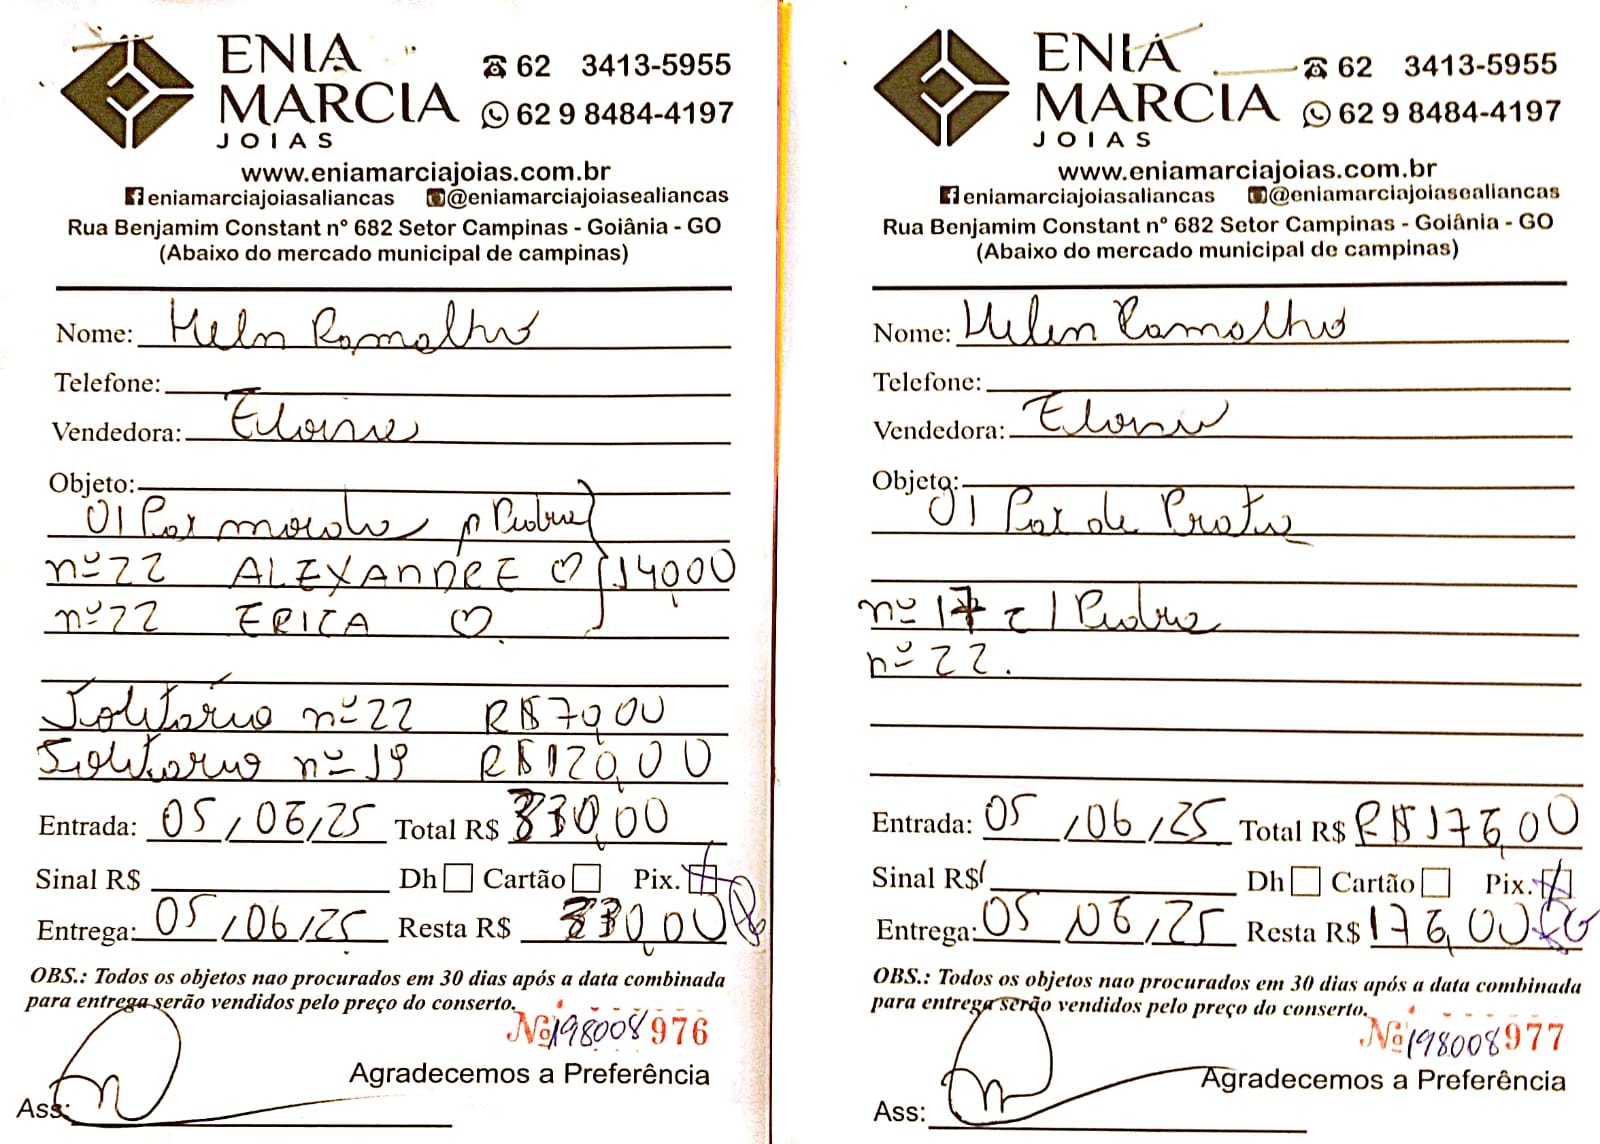 ENIA
MARCIA
JOIAS
62 3413-5955
62 9 8484-4197
www.eniamarciajoias.com.br
eniamarciajoiasaliancas @eniamarciajoiasealiancas
Rua Benjamim Constant nº 682 Setor Campinas - Goiânia - GO
(Abaixo do mercado municipal de campinas)
Nome: Helen Ramalho
Telefone:
Vendedora: Eloine
Objeto:
01 Par moeda p Pedra
nº 22 ALEXANDRE ♡ 140,00
nº 22 ERICA ♡
Solitário nº 22 R$ 70,00
Solitario nº 19 R$ 120,00
Entrada: 05/06/25 Total R$ 330,00
Sinal R$ Dh Cartão Pix.
Entrega: 05/06/25 Resta R$ 330,00
OBS.: Todos os objetos nao procurados em 30 dias após a data combinada
para entrega serão vendidos pelo preço do conserto.
Nº 198008976
Agradecemos a Preferência
Ass:
ENIA
MARCIA
JOIAS
62 3413-5955
62 9 8484-4197
www.eniamarciajoias.com.br
eniamarciajoiasaliancas @eniamarciajoiasealiancas
Rua Benjamim Constant nº 682 Setor Campinas - Goiânia - GO
(Abaixo do mercado municipal de campinas)
Nome: Helen Ramalho
Telefone:
Vendedora: Eloine
Objeto:
01 Par de Prata
nº 17 c/ Pedra
nº 22.
Entrada: 05/06/25 Total R$ R$ 176,00
Sinal R$ Dh Cartão Pix.
Entrega: 05/06/25 Resta R$ 176,00
OBS.: Todos os objetos nao procurados em 30 dias após a data combinada
para entrega serão vendidos pelo preço do conserto.
Nº 198008977
Agradecemos a Preferência
Ass: